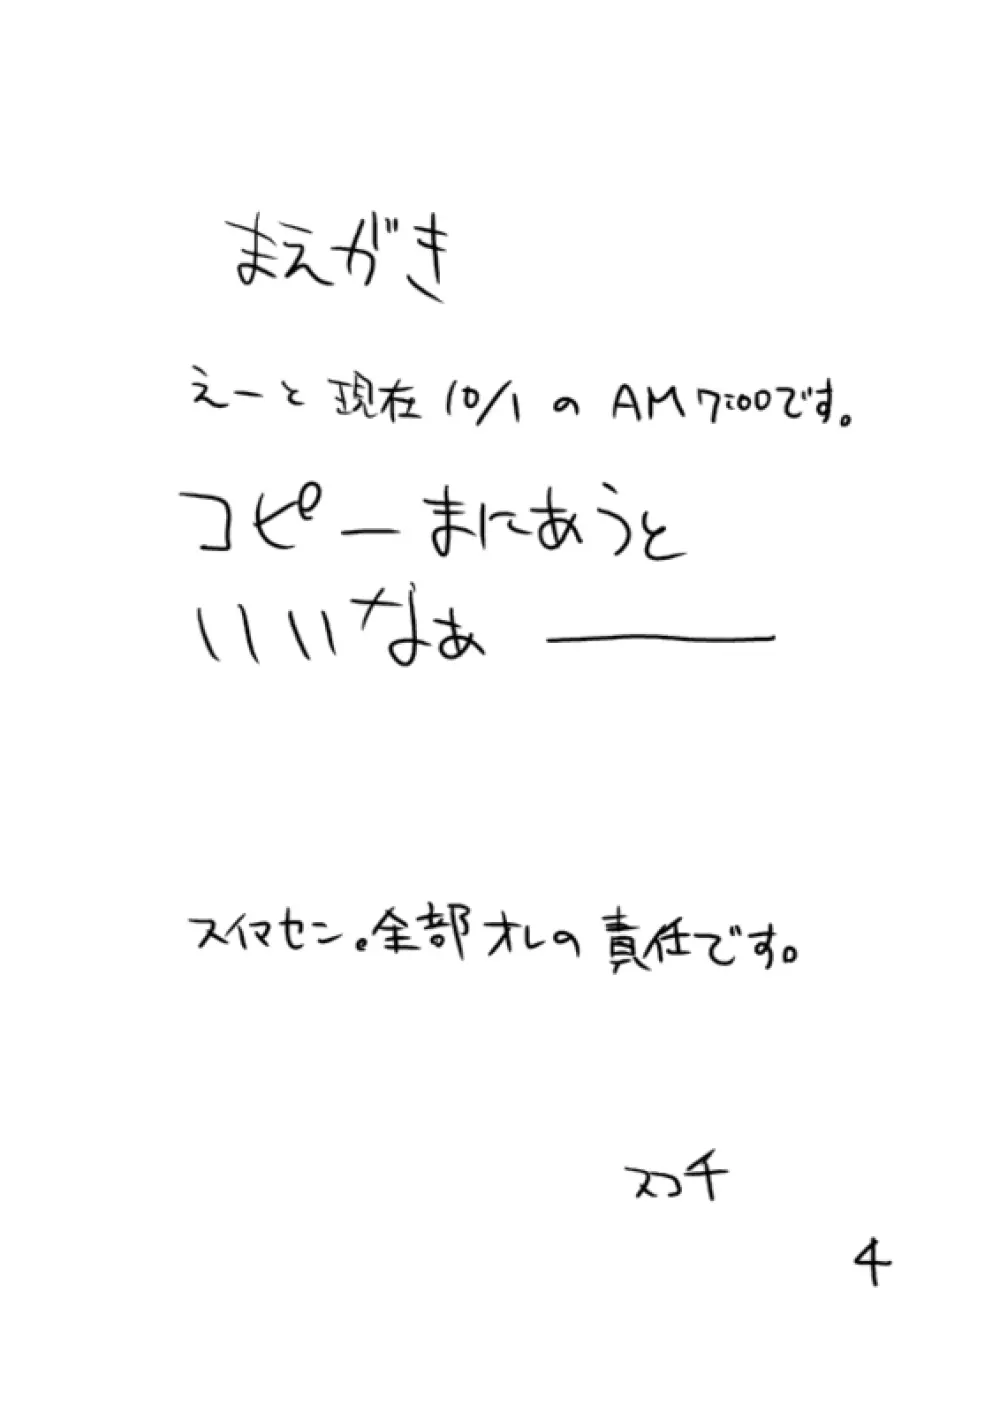 まえがき
えーと現在10/1のAM7:00です。
コピーまにあうと
いいなぁ――
スイマセン。全部オレの責任です。
スコチ
4